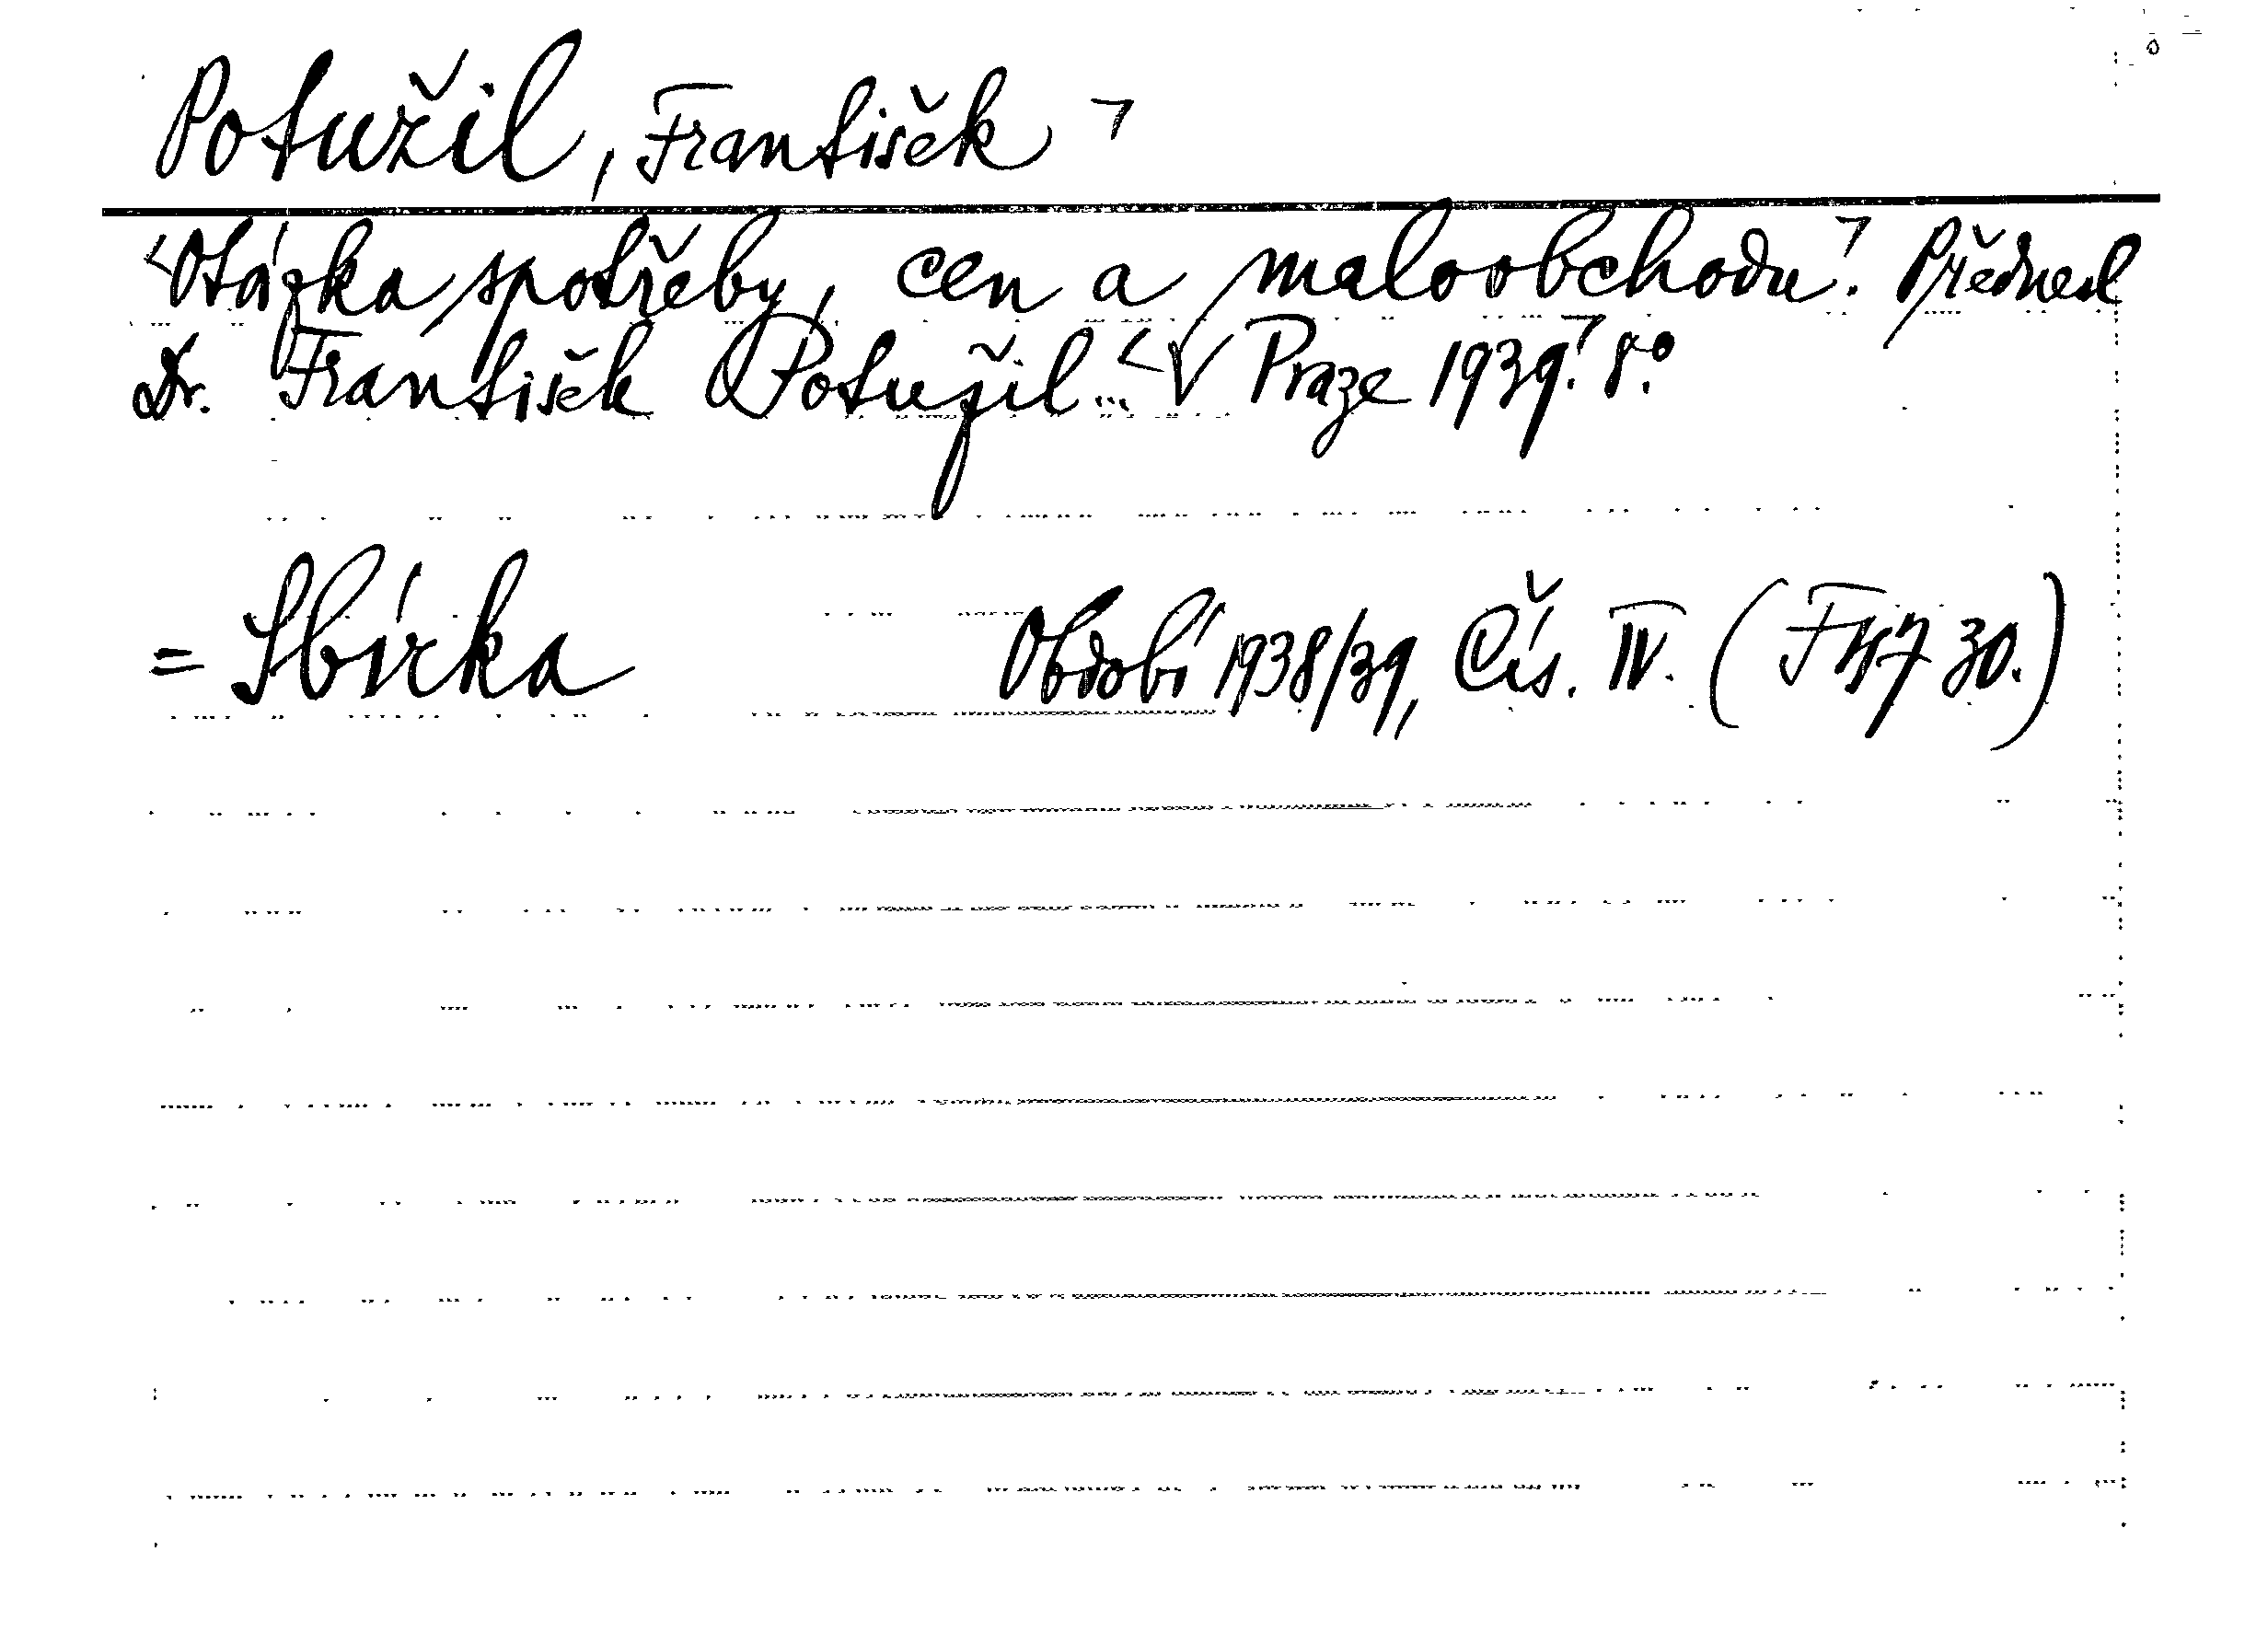 Potužil, František ⌝
<Otázka spotřeby, cen a maloobchodu⌝. Přednesl
Dr. František Potužil... <V Praze 1939⌝. 8.°
= Sbírka Období 1938/39, Čís. IV. (F 30.)